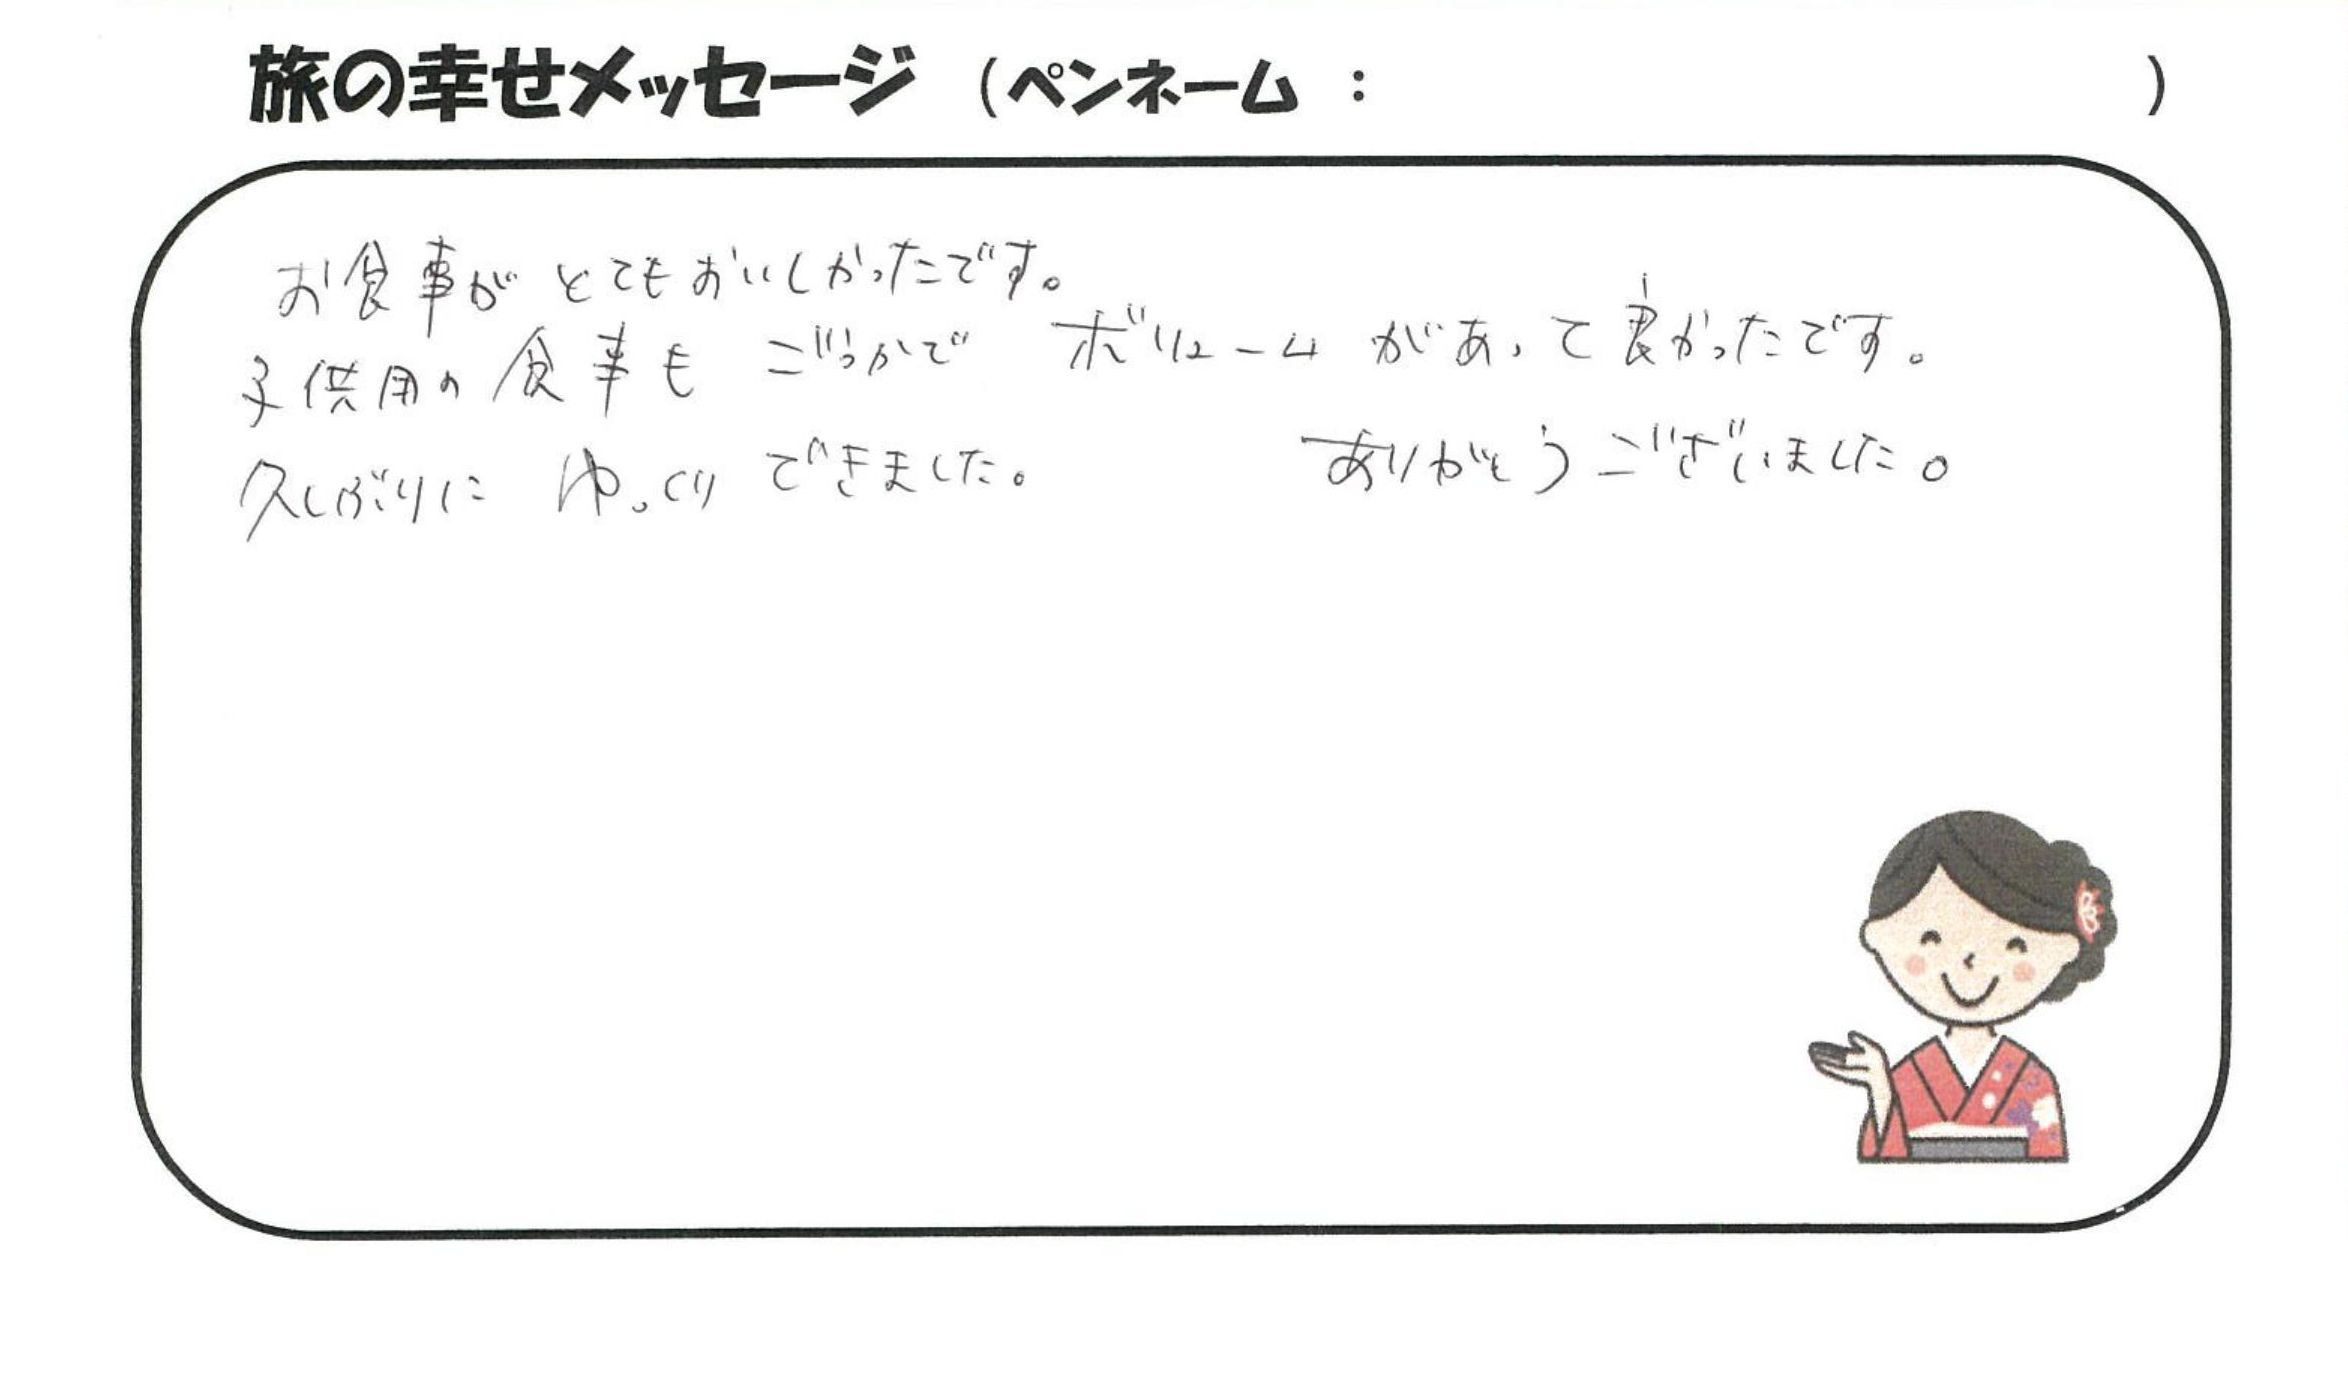 旅の幸せメッセージ (ペンネーム : )
お食事がとてもおいしかったです。
子供用の食事も ごうかで ボリュームがあって良かったです。
久しぶりに ゆっくり できました。 ありがとうございました。